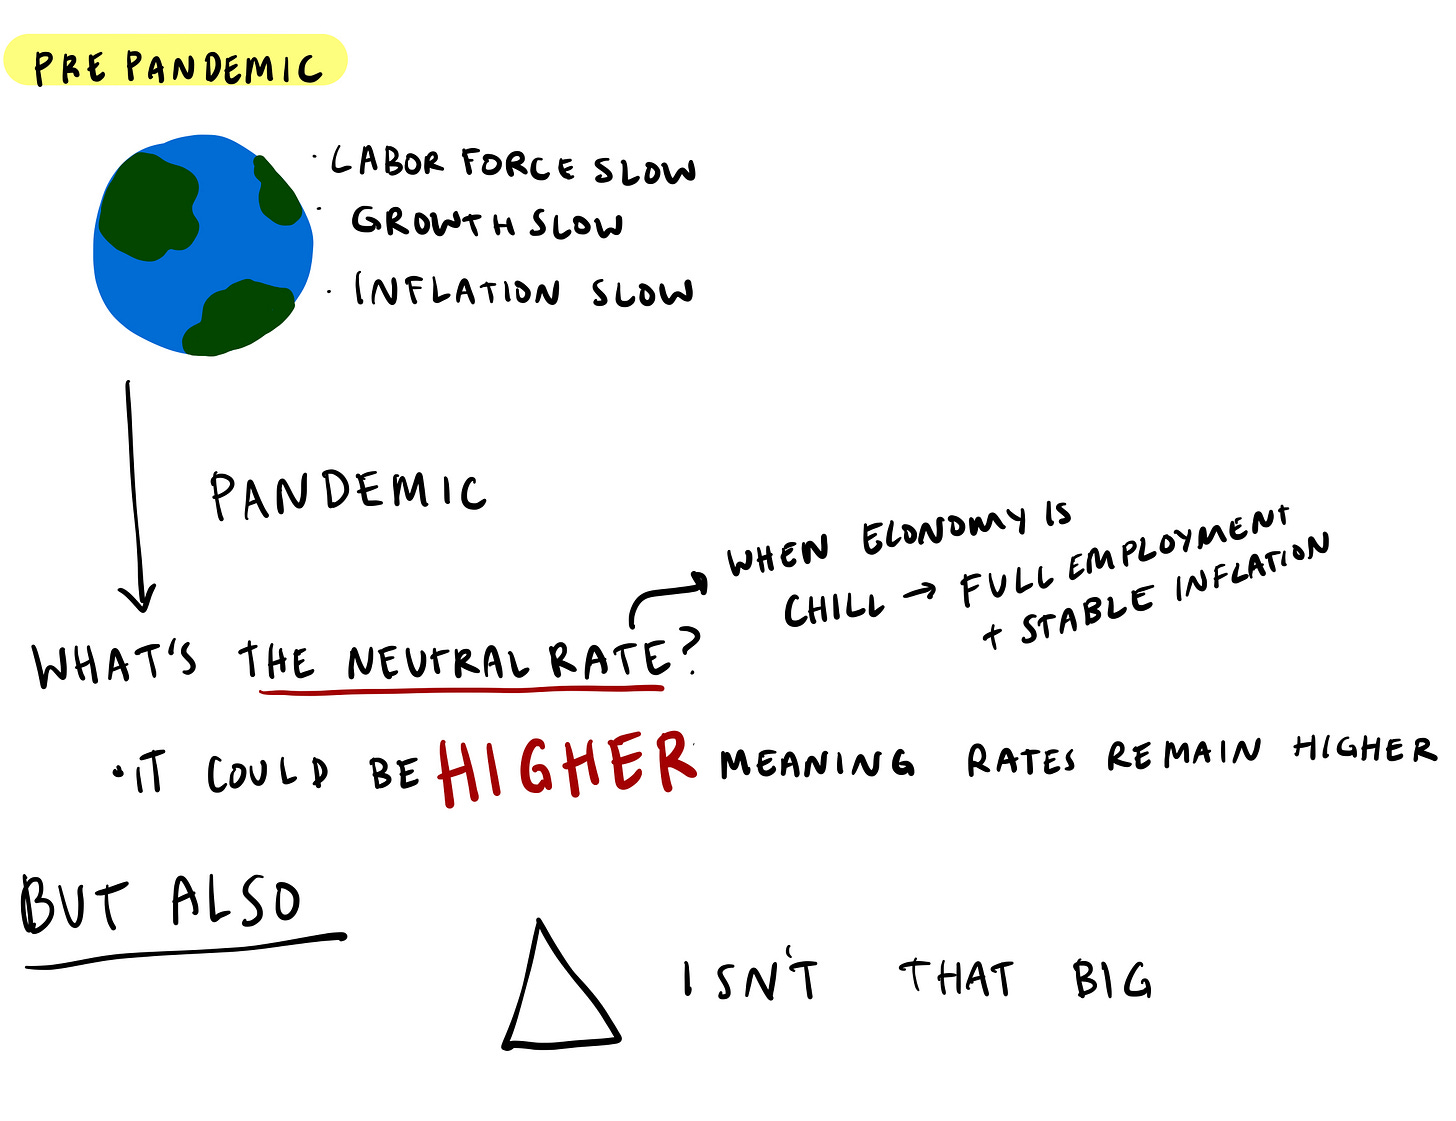 PRE PANDEMIC
· LABOR FORCE SLOW
· GROWTH SLOW
· INFLATION SLOW
PANDEMIC
WHEN ECONOMY IS
CHILL → FULL EMPLOYMENT
+ STABLE INFLATION
WHAT'S THE NEUTRAL RATE?
· IT COULD BE HIGHER MEANING RATES REMAIN HIGHER
BUT ALSO
△ ISN'T THAT BIG